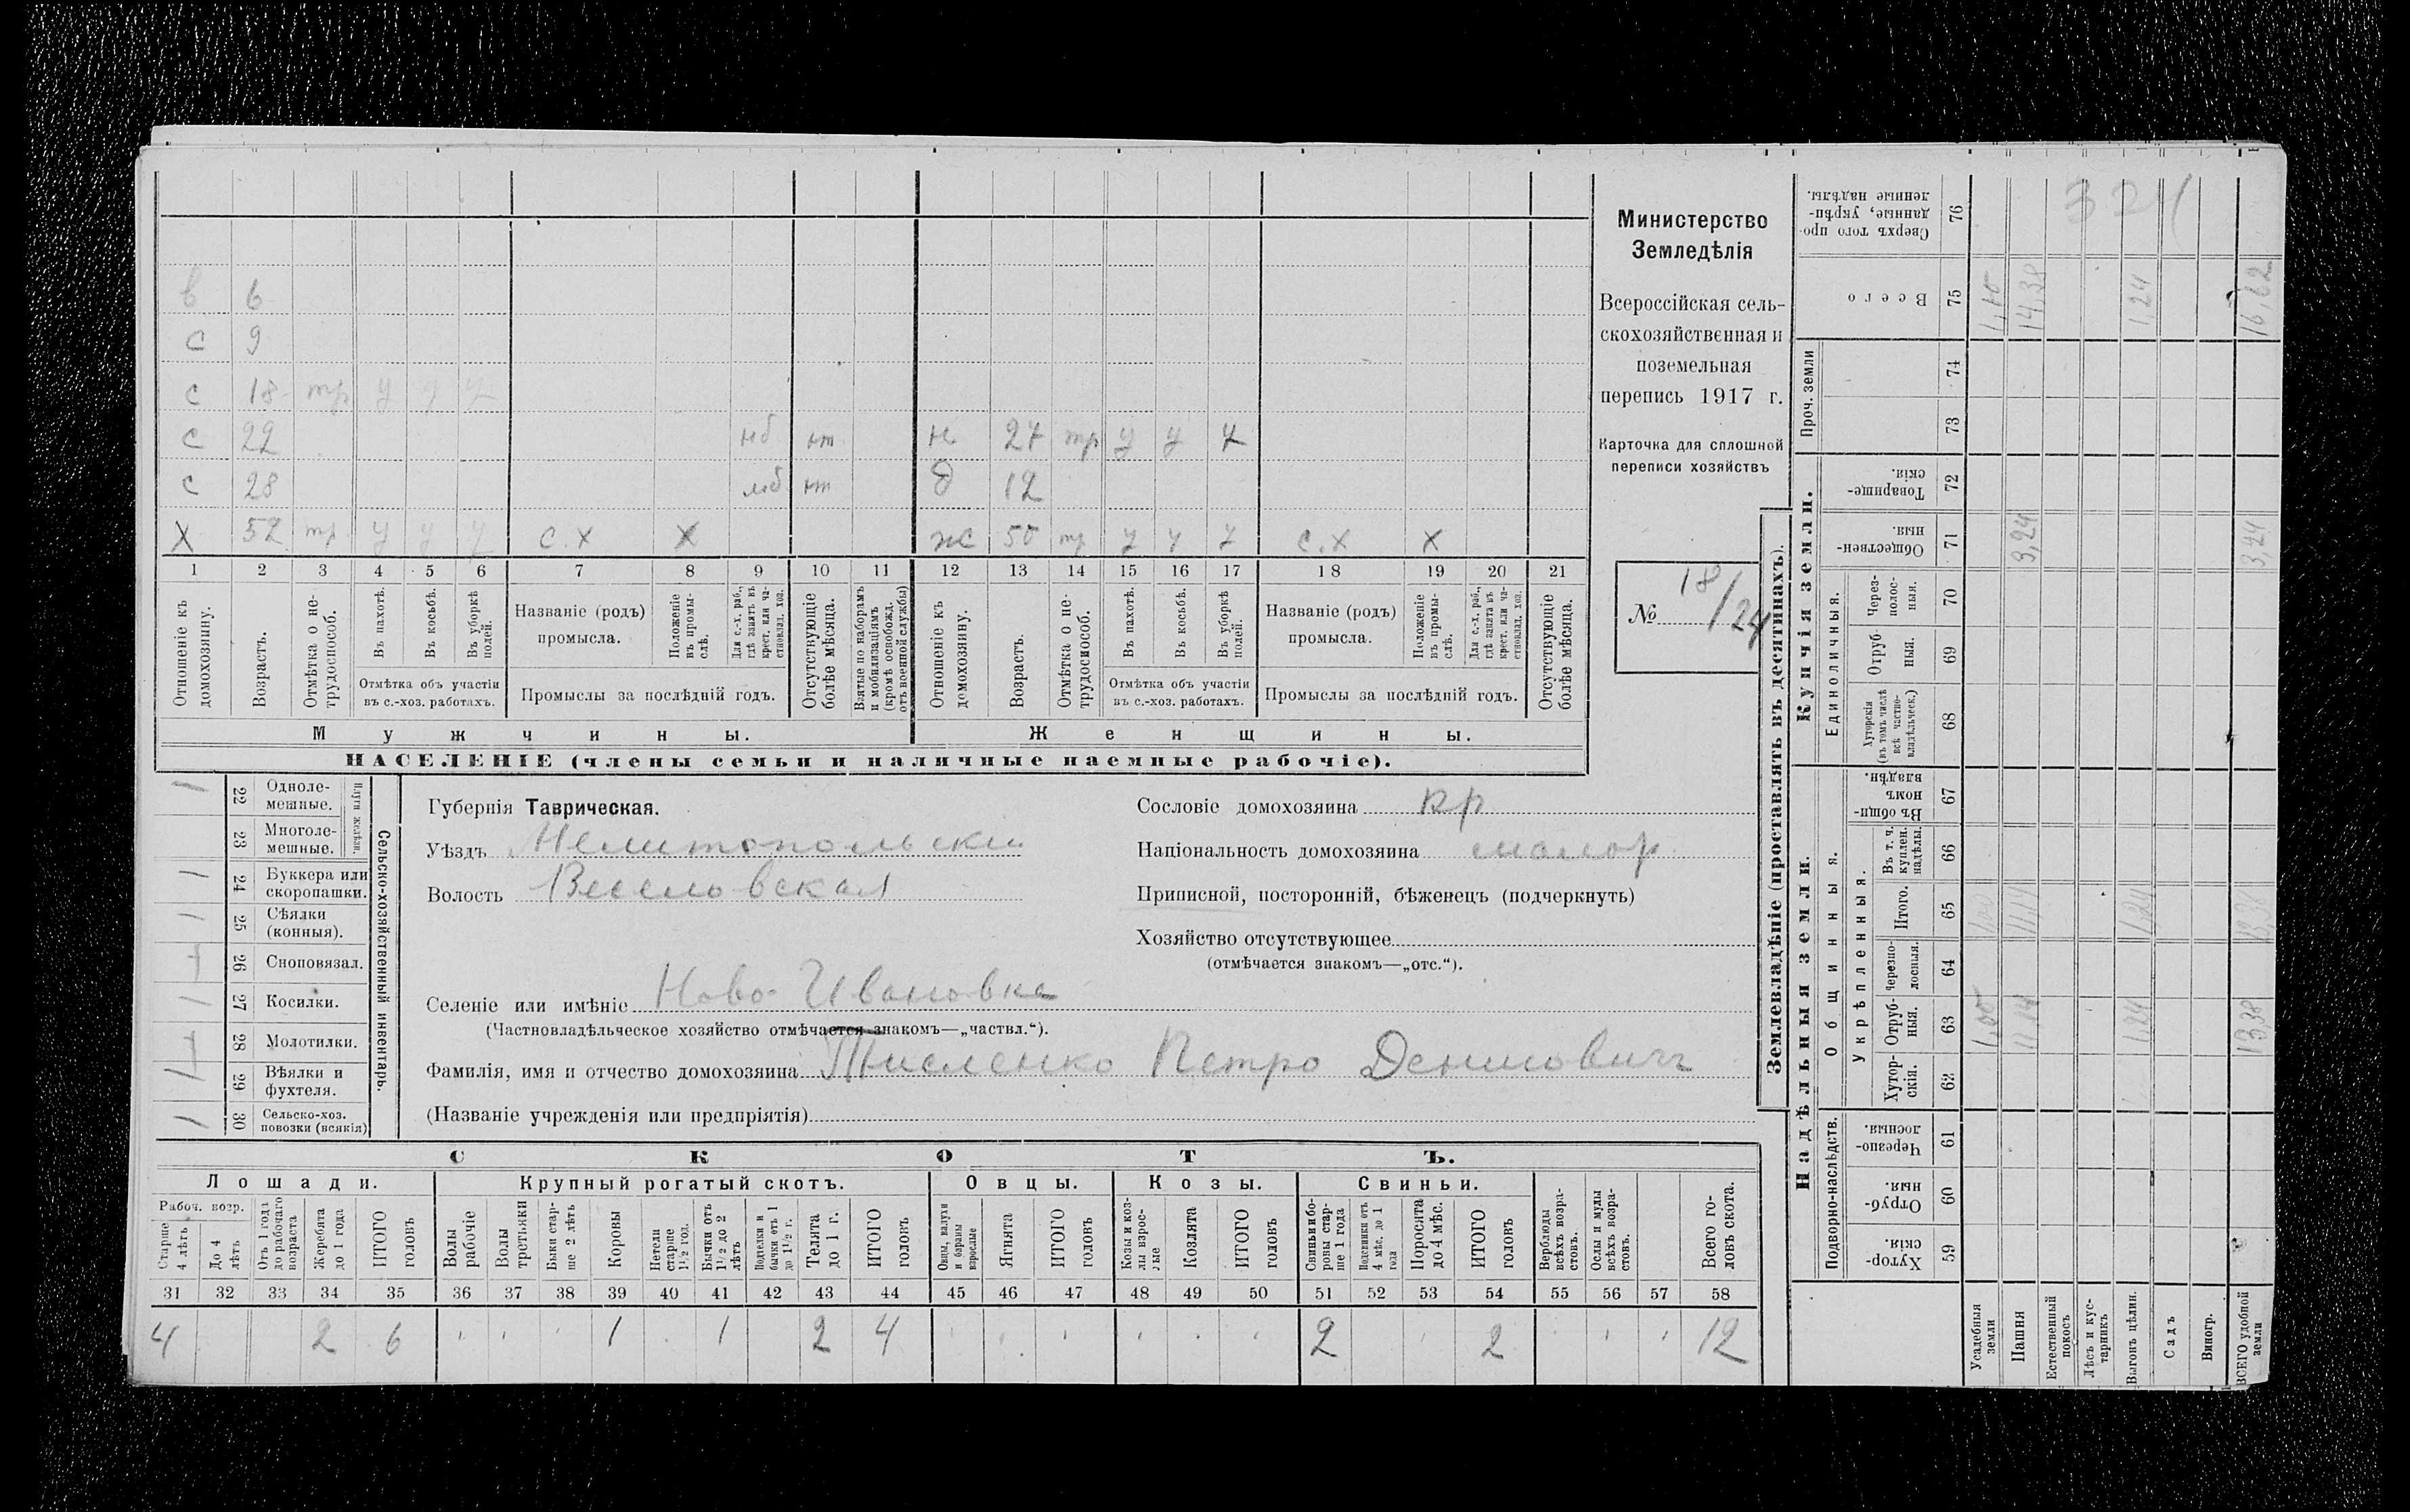 в 6
с 9
с 18 тр у у у
с 22 мб от н 27 тр у у у
с 28 мб от д 12
X 52 тр у у у с.х X ж 50 тр у у у с.х X
1 2 3 4 5 6 7 8 9 10 11 12 13 14 15 16 17 18 19 20 21
Отношеніе къ домохозяину.
Возрастъ.
Отмѣтка о не-трудоспособ.
Въ пахотѣ.
Въ косьбѣ.
Въ уборкѣ полей.
Отмѣтка объ участіи въ с.-хоз. работахъ.
Названіе (родъ) промысла.
Положеніе въ промы-слѣ.
Для с.-х. раб., гдѣ занятъ въ крест. или ча-стновлад. хоз.
Промыслы за послѣдній годъ.
Отсутствующіе болѣе мѣсяца.
Взятые по наборамъ и мобилизаціямъ (кромѣ освобожд. отъ военной службы)
Отношеніе къ домохозяину.
Возрастъ.
Отмѣтка о не-трудоспособ.
Въ пахотѣ.
Въ косьбѣ.
Въ уборкѣ полей.
Отмѣтка объ участіи въ с.-хоз. работахъ.
Названіе (родъ) промысла.
Положеніе въ промы-слѣ.
Для с.-х. раб., гдѣ занята въ крест. или ча-стновлад. хоз.
Промыслы за послѣдній годъ.
Отсутствующіе болѣе мѣсяца.
Мужчины. Женщины.
НАСЕЛЕНІЕ (члены семьи и наличные наемные рабочіе).
Министерство
Земледѣлія
Всероссійская сель-
скохозяйственная и
поземельная
перепись 1917 г.
Карточка для сплошной
переписи хозяйствъ
№ 18/24
1 22 Одноле-мешные.
23 Многоле-мешные.
Плуги желѣзн.
1 24 Буккера или скоропашки.
1 25 Сѣялки (конныя).
26 Сноповязал.
1 27 Косилки.
28 Молотилки.
1 29 Вѣялки и фухтеля.
1 30 Сельско-хоз. повозки (всякія)
Сельско-хозяйственный инвентарь.
Губернія Таврическая.
Уѣздъ Мелитопольски
Волость Веселовская
Селеніе или имѣніе Ново-Ивановка
(Частновладѣльческое хозяйство отмѣчается знакомъ—„частвл.“).
Фамилія, имя и отчество домохозяина Тисленко Петро Денисович
(Названіе учрежденія или предпріятія)
Сословіе домохозяина кр
Національность домохозяина малор
Приписной, посторонній, бѣженецъ (подчеркнуть)
Хозяйство отсутствующее
(отмѣчается знакомъ—„отс.“).
СКОТЪ.
Лошади. Крупный рогатый скотъ. Овцы. Козы. Свиньи.
Рабоч. возр.
Старше 4 лѣтъ
До 4 лѣтъ
Отъ 1 года до рабочаго возраста
Жеребята до 1 года
ИТОГО головъ
Волы рабочіе
Волы третьяки
Быки стар-ше 2 лѣтъ
Коровы
Нетели старше 1½ год.
Бычки отъ 1½ до 2 лѣтъ
Подтелки и бычки отъ 1 до 1½ г.
Телята до 1 г.
ИТОГО головъ
Овцы, валухи и бараны взрослые
Ягнята
ИТОГО головъ
Козы и коз-лы взрос-лые
Козлята
ИТОГО головъ
Свиньи и бо-ровы стар-ше 1 года
Подсвинки отъ 4 мѣс. до 1 года
Поросята до 4 мѣс.
ИТОГО головъ
Верблюды всѣхъ возра-стовъ.
Ослы и мулы всѣхъ возра-стовъ.
Всего го-ловъ скота.
31 32 33 34 35 36 37 38 39 40 41 42 43 44 45 46 47 48 49 50 51 52 53 54 55 56 57 58
4 2 6 1 1 2 4 2 2 12
Землевладѣніе (проставлять въ десятинахъ).
Сверхъ того про-данные, укрѣп-ленные надѣлы. 76 324
Всего 75 14,38 1,24 16,62
Проч. земли 74 73
Купчія земли.
Товарище-скія. 72
Обществен-ныя. 71 3,24 3,24
Единоличныя.
Через-полос-ныя. 70
Отруб-ныя. 69
Хуторскія (въ томъ числѣ всѣ частно-владѣльческ.) 68
Надѣльныя земли.
Общинныя.
Въ общи-номъ владѣн. 67
Укрѣпленныя.
Въ т. ч. куплен. надѣлы. 66
Итого. 65 1,00 11,14 1,24 13,38
Черезпо-лосныя. 64
Отруб-ныя. 63 1,00 11,14 1,24 13,38
Хутор-скія. 62
Подворно-наслѣдств.
Черезпо-лосныя. 61
Отруб-ныя. 60
Хутор-скія. 59
Усадебныя земли
Пашня
Естественный покосъ
Лѣсъ и кус-тарникъ
Выгонъ цѣлин.
Садъ
Виногр.
ВСЕГО удобной земли